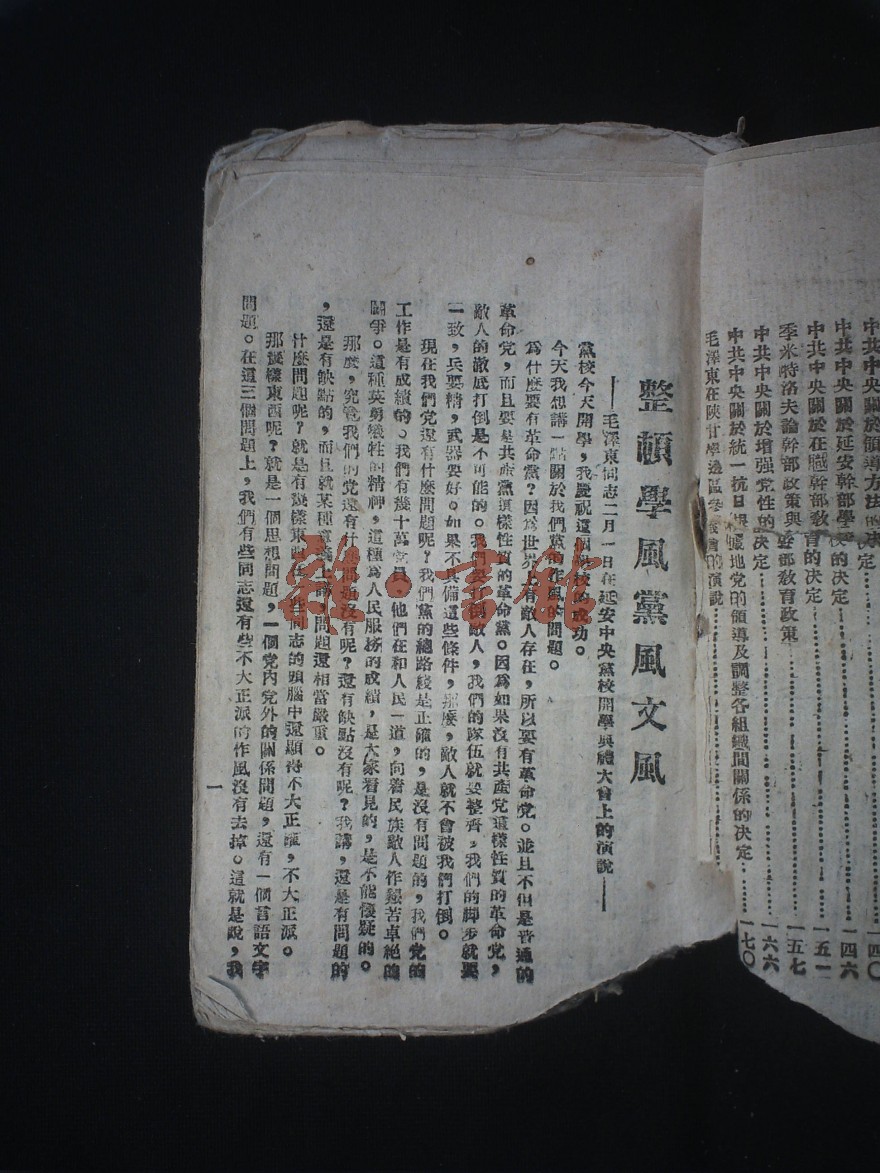 中共中央關於領導方法的決定⋯⋯一四〇
中共中央關於延安幹部學校的決定⋯⋯一四六
中共中央關於在職幹部教育的決定⋯⋯一五一
季米特洛夫論幹部政策與幹部教育政策⋯⋯一五七
中共中央關於增强党性的決定⋯⋯一六六
中共中央關於統一抗日根據地党的領導及調整各組織間關係的決定⋯⋯一七〇
毛澤東在陝甘寧邊區參議會的演說⋯⋯
整頓學風黨風文風
——毛澤東同志二月一日在延安中央黨校開學典禮大會上的演說——
黨校今天開學，我慶祝這個黨校的成功。
今天我想講一點關於我們黨的作風的問題。
爲什麼要有革命黨？因爲世界上有敵人存在，所以要有革命党。並且不但是普通的
革命党，而且要是共產黨這樣性質的革命黨。因爲如果沒有共產党這樣性質的革命党，
敵人的澈底打倒是不可能的。我們要打倒敵人，我們的隊伍就要整齊，我們的脚步就要
一致，兵要精，武器要好。如果不具備這些條件，那麼，敵人就不會被我們打倒。
現在我們党還有什麼問題呢？我們黨的總路綫是正確的，是沒有問題的，我們党的
工作是有成績的。我們有幾十萬黨員，他們在和人民一道，向着民族敵人作艱苦卓絕的
鬪爭。這種英勇犧牲的精神，這種爲人民服務的成績，是大家看見的，是不能懷疑的。
那麼，究竟我們的党還有什麼問題沒有呢？還有缺點沒有呢？我講，還是有問題的
，還是有缺點的，而且就某種意義上講，問題還相當嚴重。
什麼問題呢？就是有幾樣東西在一些同志的頭腦中還顯得不大正確，不大正派。
那幾樣東西呢？就是一個思想問題，一個党內党外的關係問題，還有一個言語文字
問題。在這三個問題上，我們有些同志還有些不大正派的作風沒有去掉。這就是說，我
一